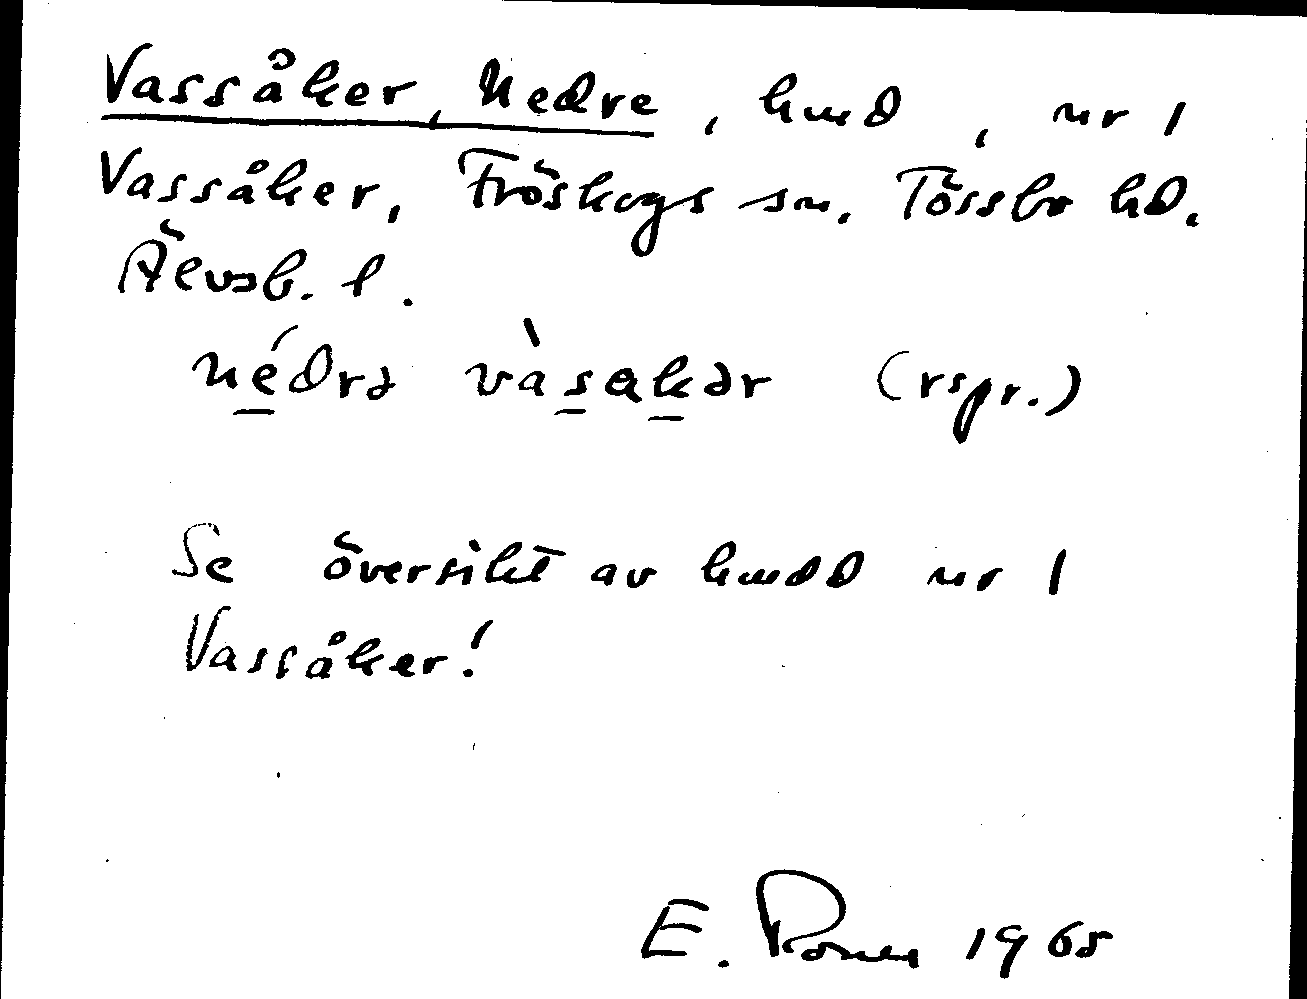 Vassåker, Nedre, hmd, nr 1
Vassåker, Fröskogs sn. Tössbo hd.
Älvsb. l.
nédrə vàsakər (rspr.)
Se översikt av hmdd nr 1
Vassåker!
E. 1965